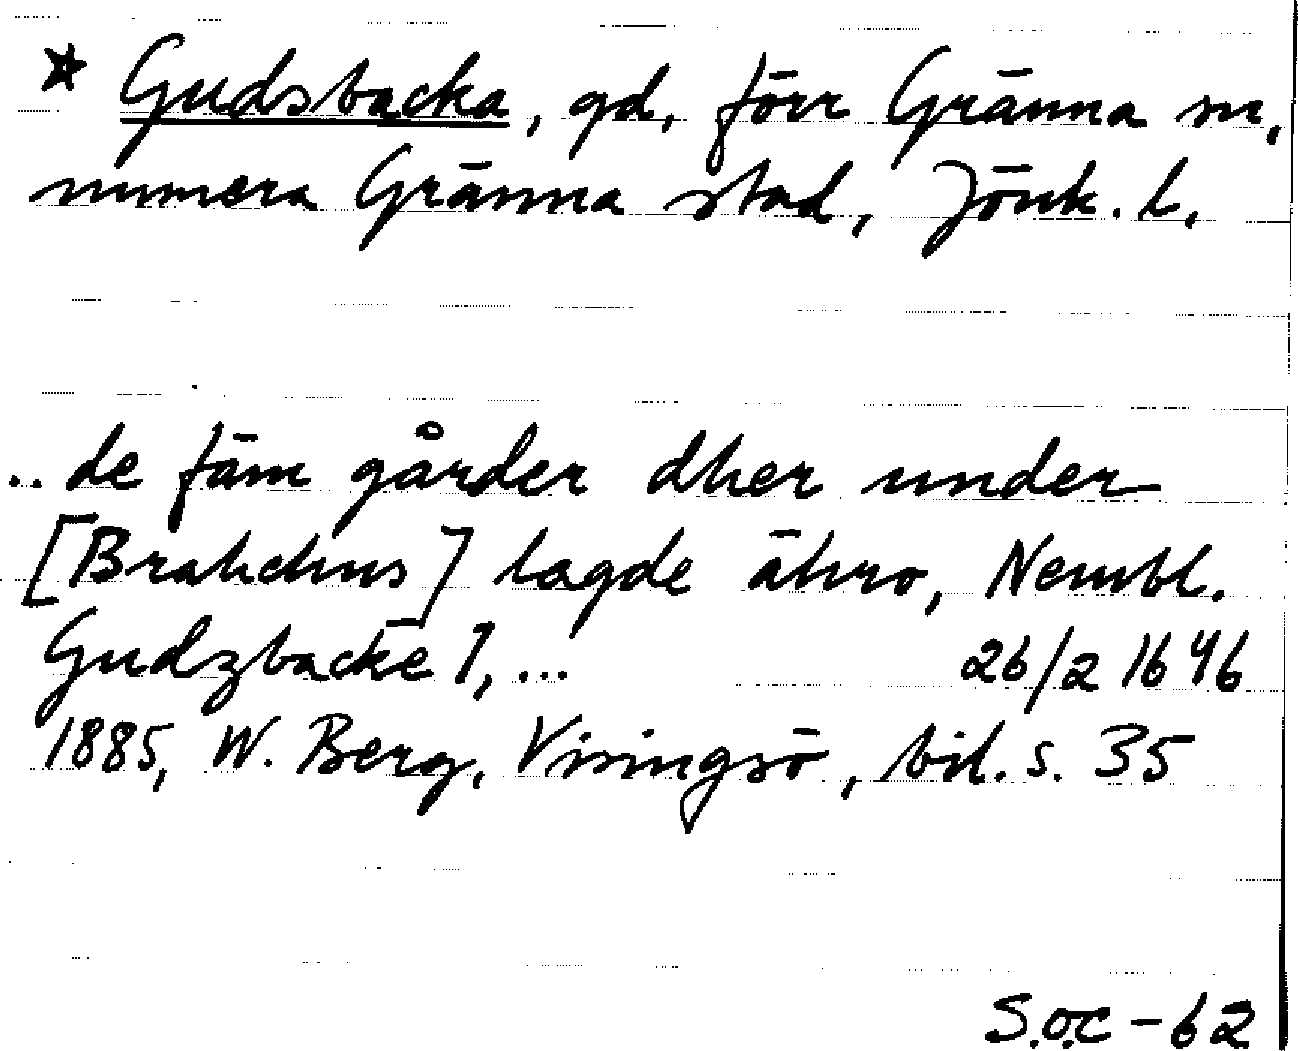 * Gudsbacka, gd, förr Gränna sn,
numera Gränna stad, Jönk. l.
.. de fäm gårder dher under
[Brahehus] lagde ähro, Nembl.
Gudzbacke 1, ... 26/2 1646
1885, W. Berg, Visingsö, bil. s. 35
S.o.c - 62